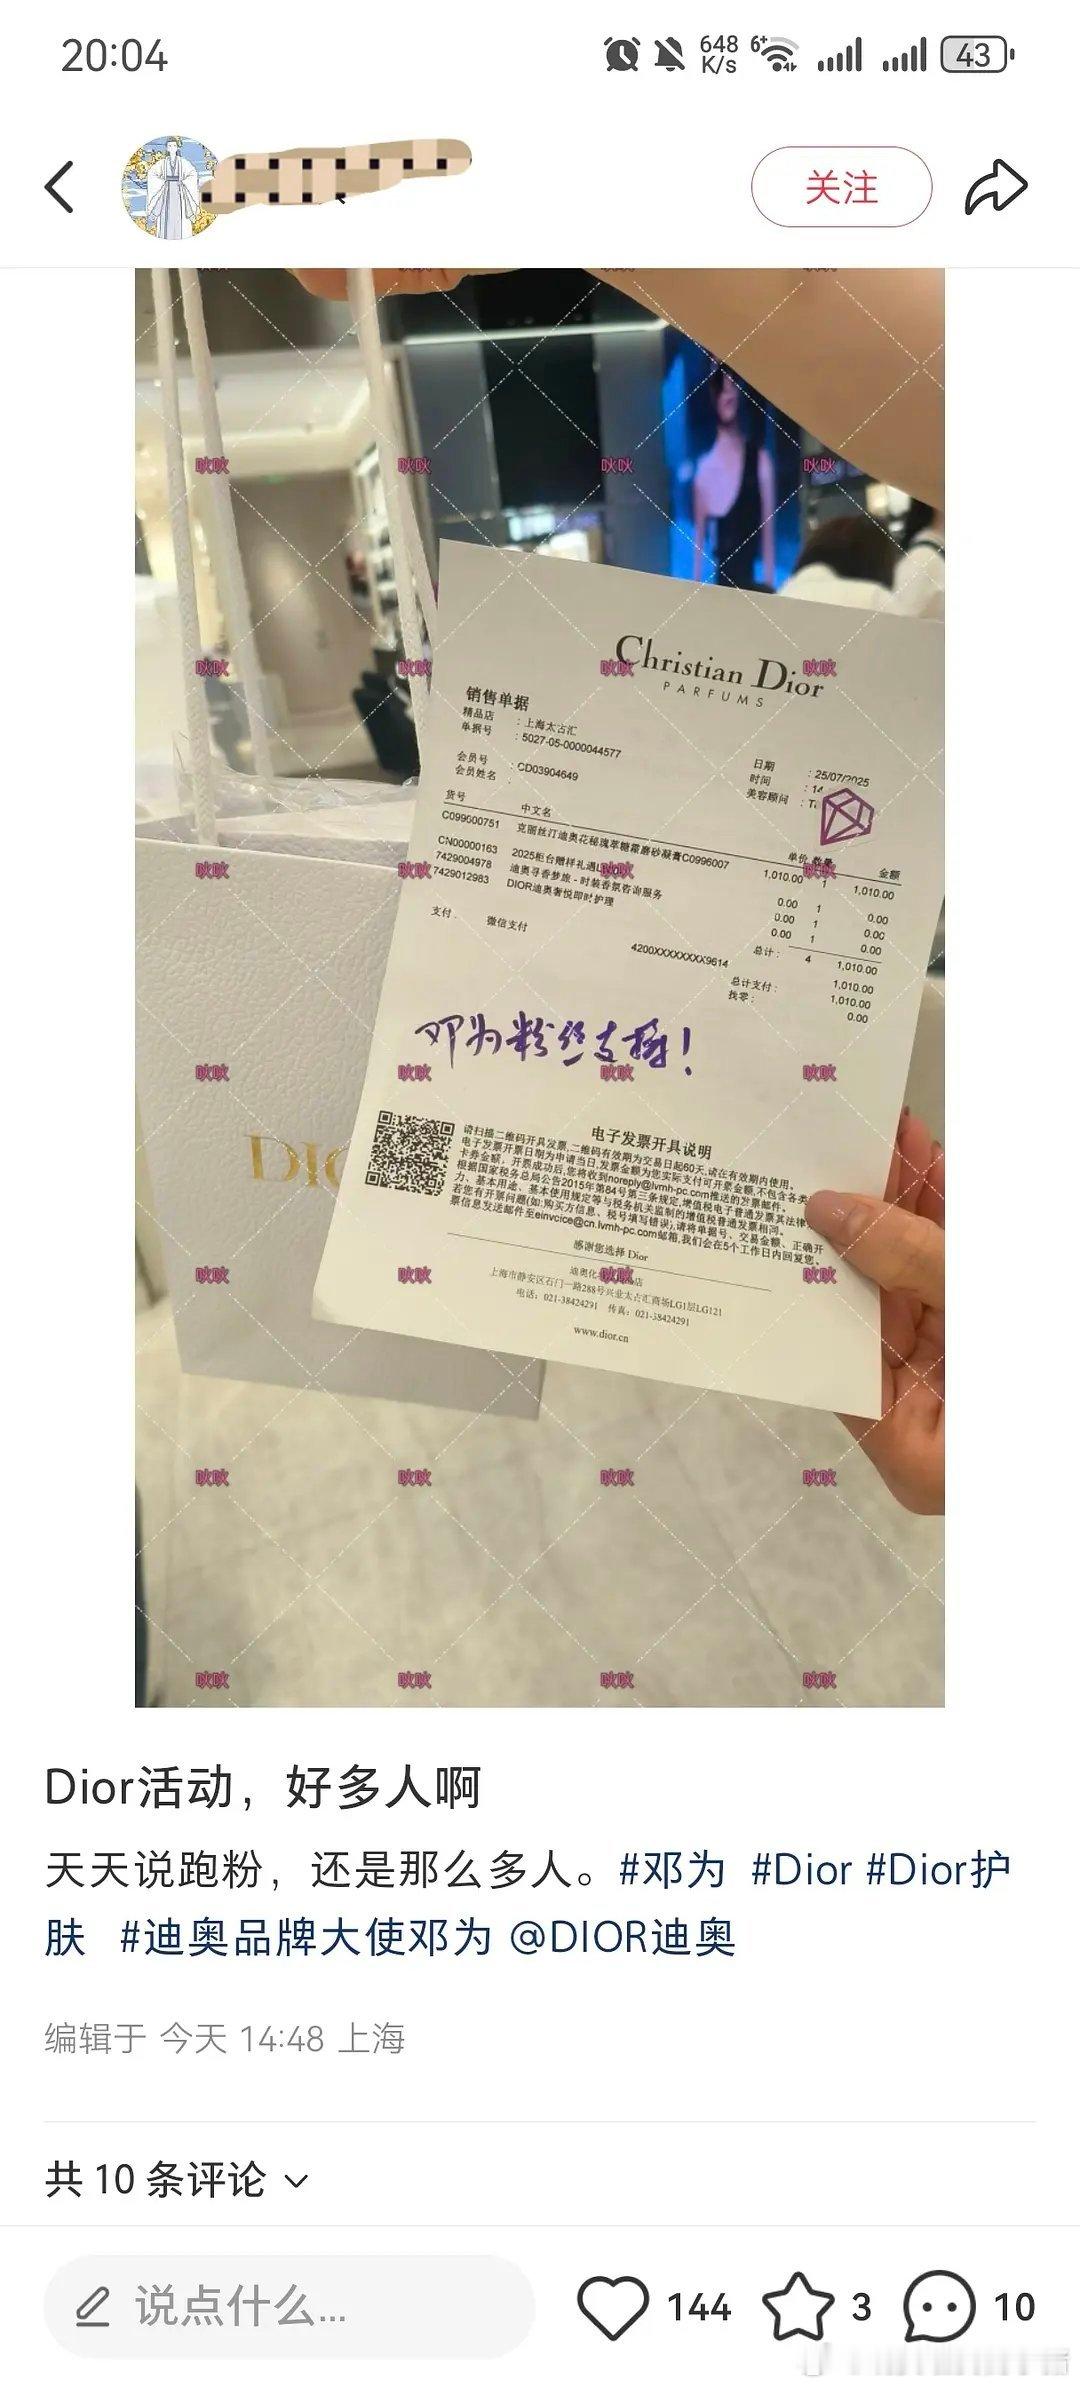 20:04
648 K/s
43
关注
Christian Dior
PARFUMS
销售单据
精品店 : 上海太古汇
单据号 : 5027-05-0000044577
会员号 : CD03904649
会员姓名 :
日期 : 25/07/2025
时间 : 14
美容顾问 : T
货号 中文名 单价 数量 金额
C099600751 克丽丝汀迪奥花秘瑰萃糖霜磨砂凝膏C0996007 1,010.00 1 1,010.00
CN00000163 2025柜台赠样礼遇 0.00 1 0.00
7429004978 迪奥寻香梦旅-时装香氛咨询服务 0.00 1 0.00
7429012983 DIOR迪奥奢悦即时护理 0.00 1 0.00
总计: 4 1,010.00
支付: 微信支付
4200XXXXXXXX9614
总计支付: 1,010.00
1,010.00
找零: 0.00
邓为粉丝支持!
电子发票开具说明
请扫描二维码开具发票,二维码有效期为交易日起60天,请在有效期内使用。
电子发票开票日期为申请当日,发票金额为您实际支付可开票金额,不包含各类
卡券金额。开票成功后,您将收到noreply@lvmh-pc.com推送的发票邮件。
根据国家税务总局公告2015年第84号第三条规定,增值税电子普通发票其法律
力、基本用途、基本使用规定等与税务机关监制的增值税普通发票相同。
若您有开票问题(如:购买方信息、税号填写错误),请将单据号、交易金额、正确开
票信息发送邮件至einvcice@cn.lvmh-pc.com邮箱,我们会在5个工作日内回复您。
感谢您选择 Dior
上海市静安区石门一路288号兴业太古汇商场LG1层LG121
电话: 021-38424291 传真: 021-38424291
www.dior.cn
Dior活动，好多人啊
天天说跑粉，还是那么多人。#邓为 #Dior #Dior护
肤 #迪奥品牌大使邓为 @DIOR迪奥
编辑于 今天 14:48 上海
共 10 条评论
说点什么...
144
3
10